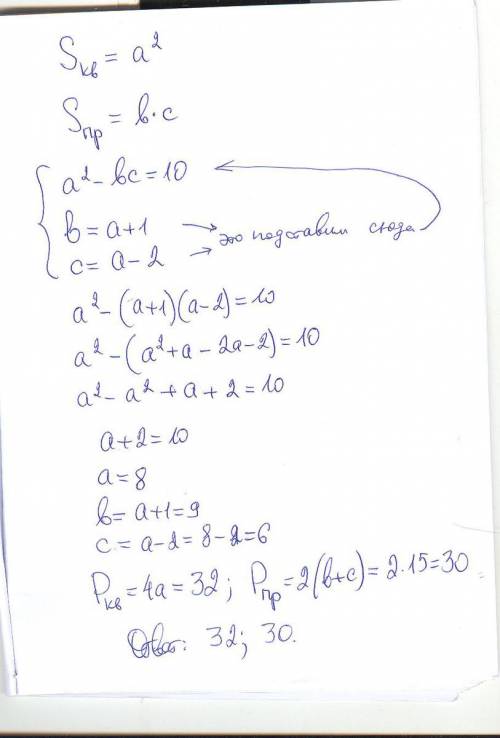 Sкв = a²
Sпр = b·c
a² - bc = 10
b = a+1
c = a-2
это подставим сюда
a² - (a+1)(a-2) = 10
a² - (a² + a - 2a - 2) = 10
a² - a² + a + 2 = 10
a+2 = 10
a = 8
b = a+1 = 9
c = a-2 = 8-2 = 6
Pкв = 4a = 32; Pпр = 2(b+c) = 2·15 = 30
Ответ: 32; 30.